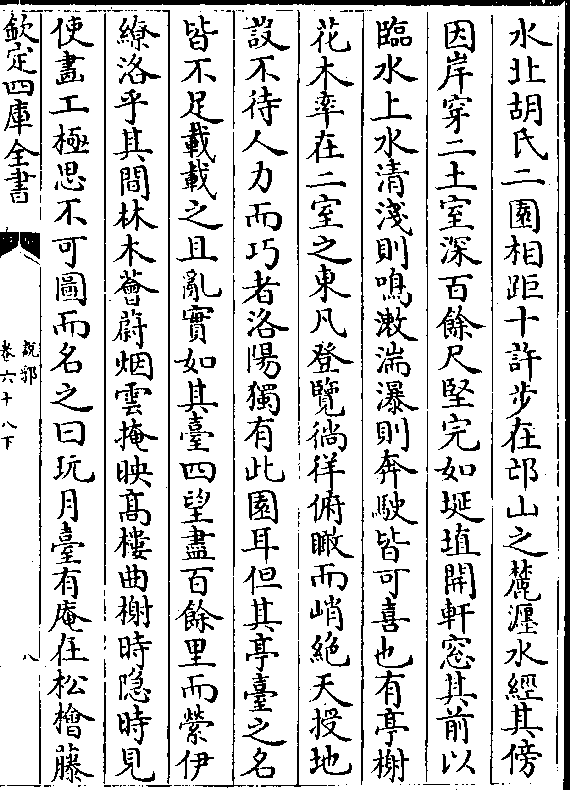 水北胡氏二園相距十許步在邙山之麓瀍水經其傍
因岸穿二土室深百餘尺堅完如埏埴開軒窓其前以
臨水上水清淺則鳴漱湍瀑則奔駛皆可喜也有亭榭
花木率在二室之東凡登覽徜徉俯瞰而峭絶天授地
設不待人力而巧者洛陽獨有此園耳但其亭臺之名
皆不足載載之且亂實如其臺四望盡百餘里而縈伊
繚洛乎其間林木薈蔚烟雲掩映髙樓曲榭時隐時見
使畫工極思不可圖而名之曰玩月臺有庵在松檜藤
欽定四庫全書
説郛
卷六十八下
八